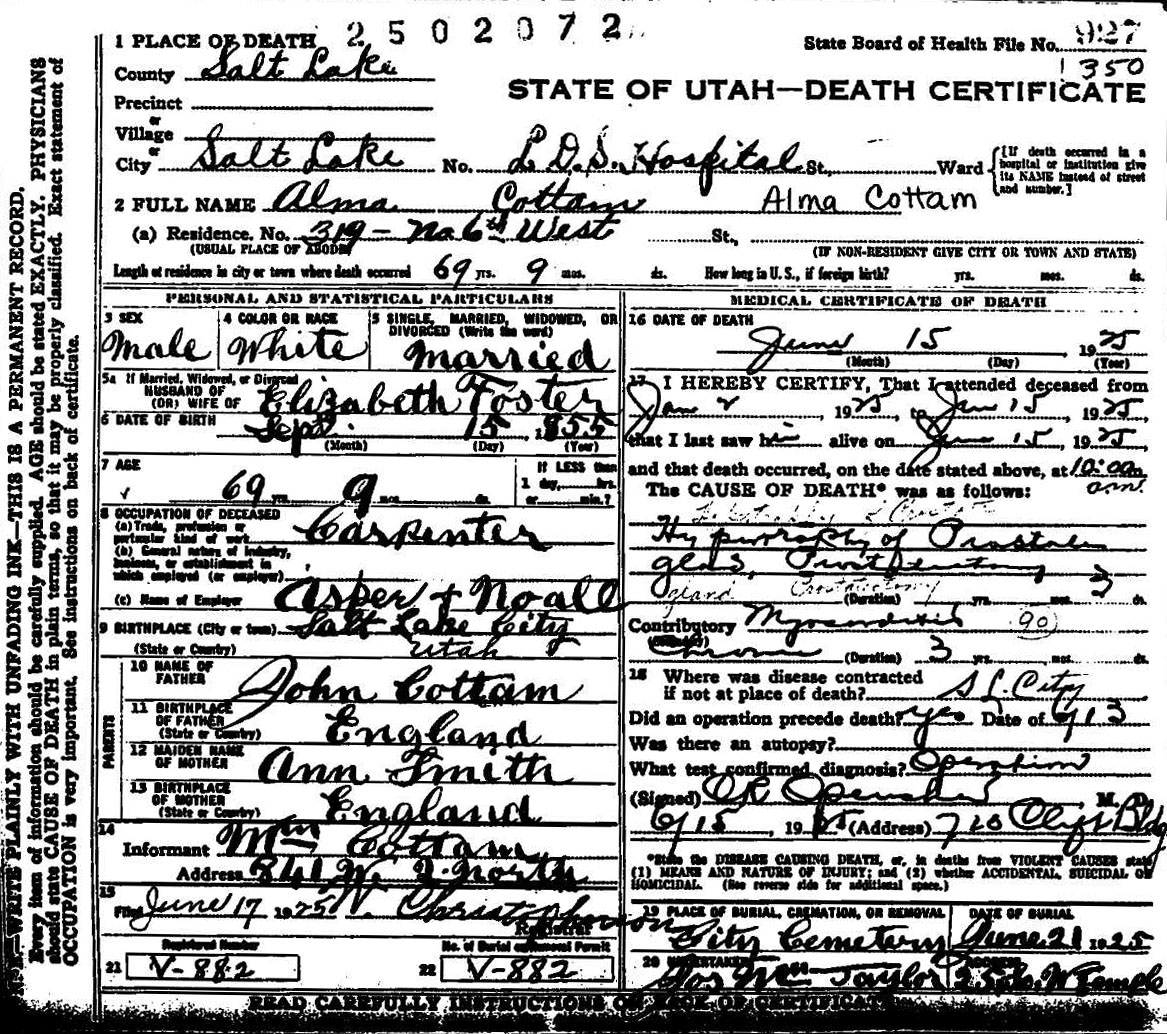 2502072
1 PLACE OF DEATH
State Board of Health File No. 927
1350
County Salt Lake
STATE OF UTAH—DEATH CERTIFICATE
Precinct
or
Village
or
City Salt Lake No. L.D.S. Hospital St., Ward [If death occurred in a hospital or institution give its NAME instead of street and number.]
2 FULL NAME Alma Cottam Alma Cottam
(a) Residence. No. 319 - No 6th West St.,
(USUAL PLACE OF ABODE) (IF NON-RESIDENT GIVE CITY OR TOWN AND STATE)
Length of residence in city or town where death occurred 69 yrs. 9 mos. ds. How long in U. S., if foreign birth? yrs. mos. ds.
PERSONAL AND STATISTICAL PARTICULARS
3 SEX 4 COLOR OR RACE 5 SINGLE, MARRIED, WIDOWED, OR DIVORCED (Write the word)
Male White Married
5a If Married, Widowed, or Divorced
HUSBAND OF
(OR) WIFE OF Elizabeth Foster
6 DATE OF BIRTH Sept. 15 1855
(Month) (Day) (Year)
7 AGE If LESS than
69 yrs. 9 mos. ds. 1 day, hrs.
or min.?
8 OCCUPATION OF DECEASED
(a) Trade, profession or
particular kind of work Carpenter
(b) General nature of industry,
business, or establishment in
which employed (or employer)
(c) Name of Employer Asper + Noall
9 BIRTHPLACE (City or town) Salt Lake City
(State or Country) Utah
PARENTS
10 NAME OF
FATHER John Cottam
11 BIRTHPLACE
OF FATHER
(State or Country) England
12 MAIDEN NAME
OF MOTHER Ann Smith
13 BIRTHPLACE
OF MOTHER
(State or Country) England
14
Informant Wm Cottam
Address 841 W. 2 North
15
Filed June 17 1925 Christopherson
Registrar
Registered Number No. of Burial or Removal Permit
21 V-882 22 V-882
MEDICAL CERTIFICATE OF DEATH
16 DATE OF DEATH
June 15 1925
(Month) (Day) (Year)
17 I HEREBY CERTIFY, That I attended deceased from
Jan 2, 1925, to Jun 15, 1925
that I last saw him alive on Jun 15, 1925
and that death occurred, on the date stated above, at 10:00 a.m.
The CAUSE OF DEATH* was as follows:
Hypertrophy of Prostate
gland
gland
(Duration) yrs. mos. 3 ds.
Contributory Myocarditis 90
Chronic (Duration) 3 yrs. mos. ds.
18 Where was disease contracted
if not at place of death? S L City
Did an operation precede death? yes Date of 6/13
Was there an autopsy?
What test confirmed diagnosis? Operation
(Signed) M. D.
6/15, 1925 (Address) 720 Clift Bldg
*State the DISEASE CAUSING DEATH, or, in deaths from VIOLENT CAUSES state
(1) MEANS AND NATURE OF INJURY; and (2) whether ACCIDENTAL, SUICIDAL OR
HOMICIDAL. (See reverse side for additional space.)
19 PLACE OF BURIAL, CREMATION, OR REMOVAL DATE OF BURIAL
City Cemetery June 21 1925
20 UNDERTAKER ADDRESS
Jos Wm Taylor
READ CAREFULLY INSTRUCTIONS ON BACK OF CERTIFICATE
N. B.—WRITE PLAINLY WITH UNFADING INK—THIS IS A PERMANENT RECORD.
Every item of information should be carefully supplied. AGE should be stated EXACTLY. PHYSICIANS
should state CAUSE OF DEATH in plain terms, so that it may be properly classified. Exact statement of
OCCUPATION is very important. See instructions on back of certificate.